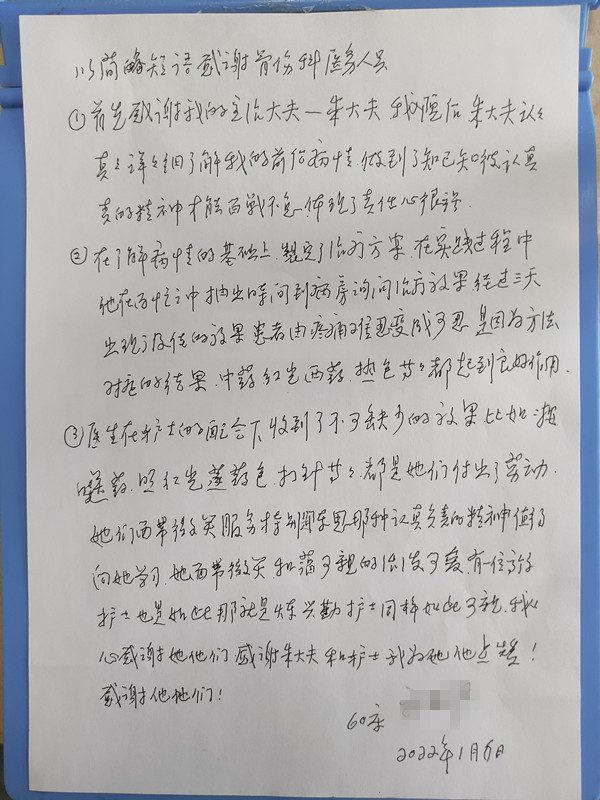 以简略短语感谢骨伤科医务人员
①首先感谢我的主治大夫—朱大夫，我入院后，朱大夫认々
真々详々细了解我的前后病情，做到了知己知彼认真
真的精神才能百战不怠，体现了责任心很强。
②在了解病情的基础上，制定了治疗方案，在实践过程中
他在百忙之中抽出时间到病房询问治疗效果经过三天
出现了极佳的效果患者由疼痛难忍变成可忍，是因为方法
对症的结果，中药红光西药，热包等々都起到良好作用。
③医生在护士的配合下收到了不可缺少的效果比如：按
药，照红光蒸药包，打针等々，都是她们付出了劳动，
她们面带微笑服务特别那种认真负责的精神值得
向她学习，她面带微笑和蔼可亲的可爱，有一位
护士也是如此那就是兴勤护士同样如此可亲，我从
心感谢她他们感谢朱大夫和护士我为她他点赞！
感谢他她们！
60床
2022年1月6日